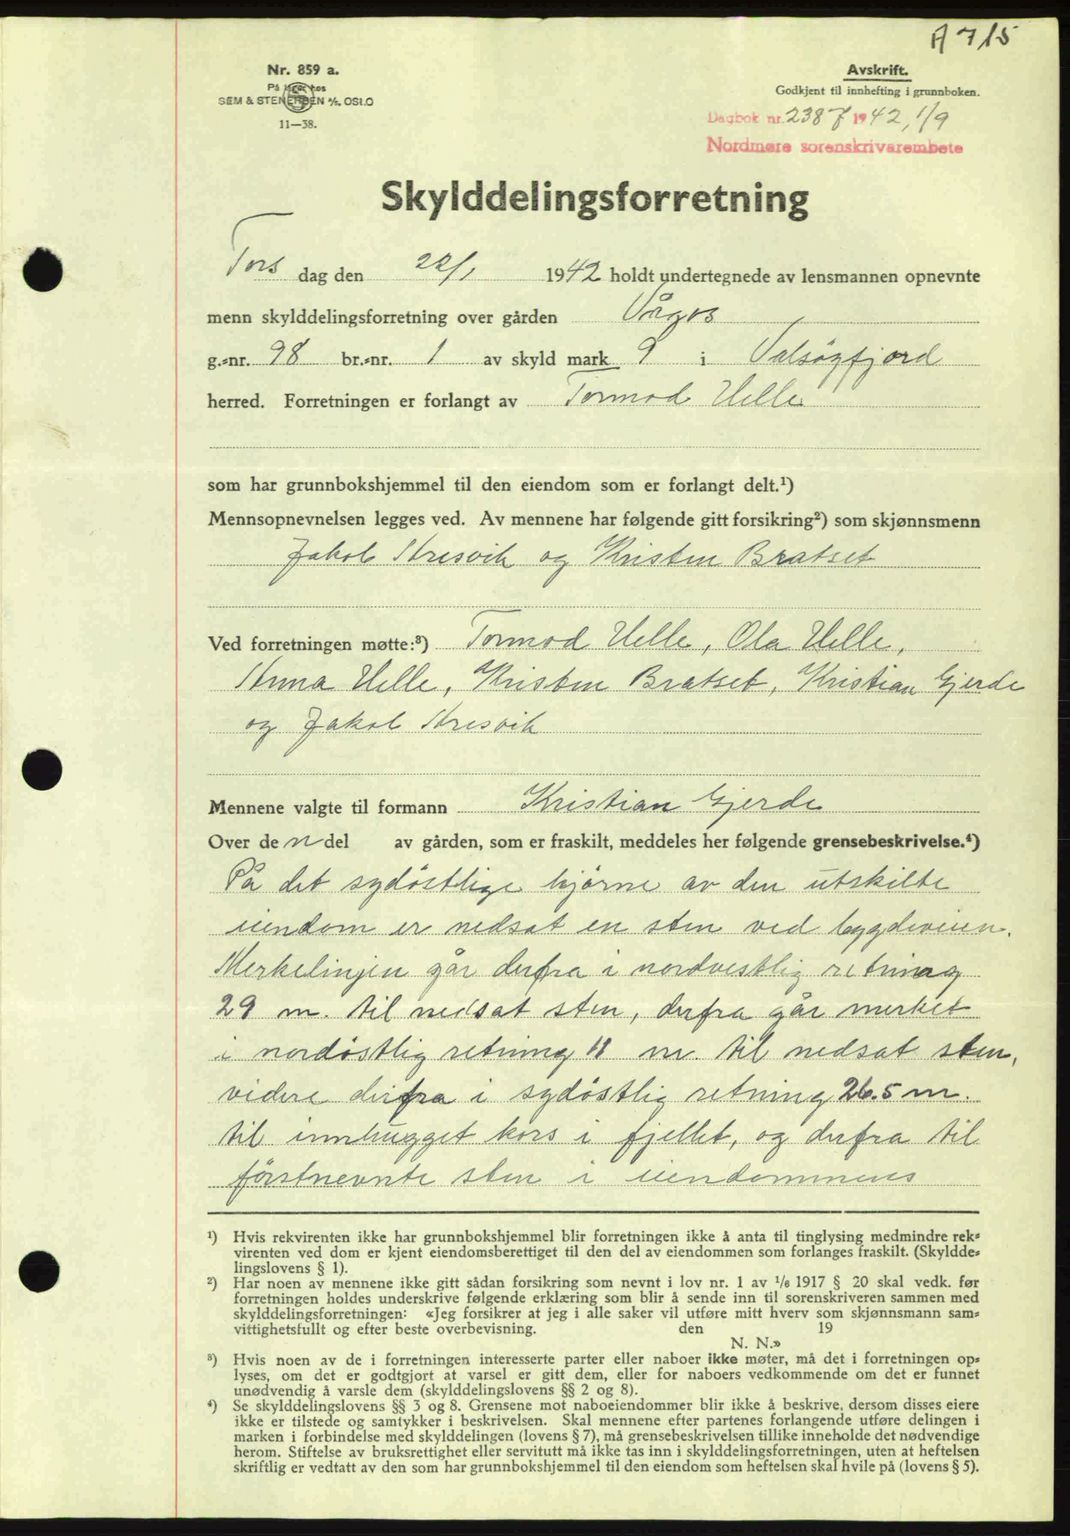 A 715
Nr. 859 a.
På lager hos
SEM & STENERSEN A/S. OSLO
11—38.
Avskrift.
Godkjent til innhefting i grunnboken.
Dagbok nr. 2387 1942, 1/9
Nordmøre sorenskrivarembete
Skylddelingsforretning
Tors dag den 22/1 1942 holdt undertegnede av lensmannen opnevnte
menn skylddelingsforretning over gården Vågos
g.-nr. 98 br.-nr. 1 av skyld mark 9 i Valsøyfjord
herred. Forretningen er forlangt av Tormod Helle
som har grunnbokshjemmel til den eiendom som er forlangt delt.¹)
Mennsopnevnelsen legges ved. Av mennene har følgende gitt forsikring²) som skjønnsmenn
Jakob Aresvik og Kristen Bratset
Ved forretningen møtte:³) Tormod Helle, Ola Helle,
Anna Helle, Kristen Bratset, Kristian Gjerde
og Jakob Aresvik
Mennene valgte til formann Kristian Gjerde
Over de n del av gården, som er fraskilt, meddeles her følgende grensebeskrivelse.⁴)
På det sydöstlige hjörne av den utskilte
eiendom er nedsat en sten ved bygdeveien.
Merkelinjen går derfra i nordvestlig retning
29 m. til nedsat sten, derfra går merket
i nordöstlig retning 11 m til nedsat sten,
videre derfra i sydöstlig retning 26.5 m.
til innhugget kors i fjellet, og derfra til
förstnevnte sten i eiendommens
¹) Hvis rekvirenten ikke har grunnbokshjemmel blir forretningen ikke å anta til tinglysing medmindre rek-
virenten ved dom er kjent eiendomsberettiget til den del av eiendommen som forlanges fraskilt. (Skyldde-
lingslovens § 1).
²) Har noen av mennene ikke gitt sådan forsikring som nevnt i lov nr. 1 av 1/6 1917 § 20 skal vedk. før
forretningen holdes underskrive følgende erklæring som blir å sende inn til sorenskriveren sammen med
skylddelingsforretningen: «Jeg forsikrer at jeg i alle saker vil utføre mitt hverv som skjønnsmann sam-
vittighetsfullt og efter beste overbevisning. den 19
N. N.»
³) Hvis noen av de i forretningen interesserte parter eller naboer ikke møter, må det i forretningen op-
lyses, om det er godtgjort at varsel er gitt dem, eller for naboers vedkommende om det er funnet
unødvendig å varsle dem (skylddelingslovens §§ 2 og 8).
⁴) Se skylddelingslovens §§ 3 og 8. Grensene mot naboeiendommer blir ikke å beskrive, dersom disses eiere
ikke er tilstede og samtykker i beskrivelsen. Skal mennene efter partenes forlangende utføre delingen i
marken i forbindelse med skylddelingen (lovens § 7), må grensebeskrivelsen tillike inneholde det nødvendige
herom. Stiftelse av bruksrettighet eller servitutt må ikke tas inn i skylddelingsforretningen, uten at heftelsen
skriftlig er vedtatt av den som har grunnbokshjemmel til den eiendom som heftelsen skal hvile på (lovens § 5).